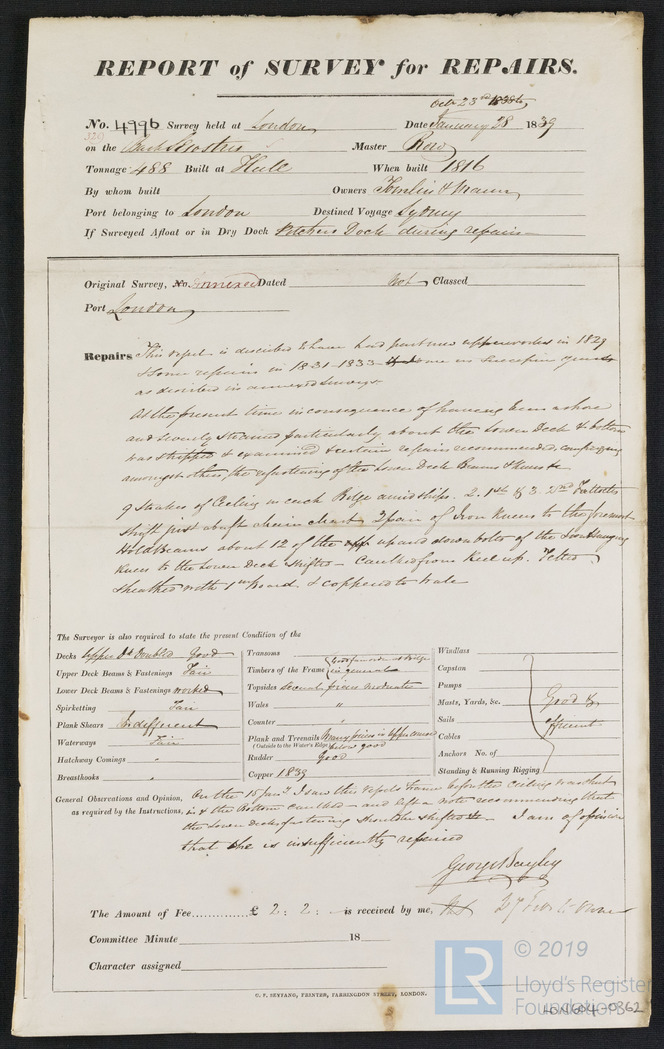 REPORT of SURVEY for REPAIRS.
Octr 23rd
No. 4996 Survey held at London Date January 28 1839
on the Bark Master Row
Tonnage 488 Built at Hull When built 1816
By whom built Owners Tomlin & Mann
Port belonging to London Destined Voyage Sydney
If Surveyed Afloat or in Dry Dock Pitchers Dock during repairs
Original Survey, No. annexed Dated Not Classed
Port London
Repairs This vessel is described to have had part new upperworks in 1829
& some repairs in 1831-1833
as described in annexed surveys.
At the present time in consequence of having been ashore
and severely strained particularly about the Lower Deck & bottom
was stripped & examined & certain repairs recommended, comprizing
amongst others, the refastening of the Lower Deck Beams & Knees &c
9 strakes of Ceiling in each Bilge amidships. 2. 1st & 3. 2nd Futtocks
shift just abaft chain 3 pair of Iron Knees to the
Hold Beams about 12 of the up and down bolts of the Iron Hanging
Knees to the Lower Deck shifted - Caulked from Keel up. Felted
sheathed with 1 in board. & coppered to Wale
The Surveyor is also required to state the present Condition of the
Decks Upper Dk Doubled Good
Upper Deck Beams & Fastenings Fair
Lower Deck Beams & Fastenings worked
Spirketting Fair
Plank Shears Indifferent
Waterways Fair
Hatchway Comings "
Breasthooks "
Transoms
Timbers of the Frame in general
Topsides Several pieces
Wales "
Counter "
Plank and Treenails Many pieces in upper
(Outside to the Water's Edge) below good
Rudder Good
Copper 1839
Windlass
Capstan
Pumps
Masts, Yards, &c. Good &
Sails efficient
Cables
Anchors No. of
Standing & Running Rigging
General Observations and Opinion, On the 15 Jany I saw this vessels frame before the ceiling was shut
as required by the Instructions, in & the Bottom caulked - and left a note recommending that
the Lower deck fastening should be shifted - I am of opinion
that she is insufficiently repaired
George Bayley
The Amount of Fee.............. £ 2 : 2 : - is received by me,
Committee Minute 18
Character assigned
C. F. SEYFANG, PRINTER, FARRINGDON STREET, LONDON.
LR
© 2019
Lloyd's Register
Foundation
LON604-0362